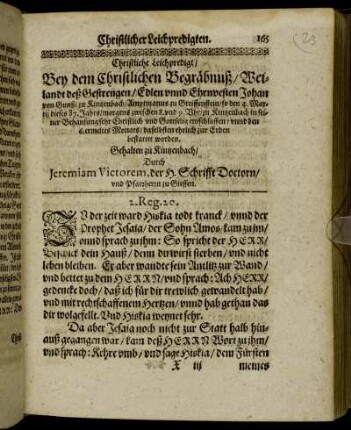 Christlicher Leichpredigten. 165
Christliche Leichpredigt/
Bey dem Christlichen Begräbnuß/ Wei-
landt deß Gestrengen/ Edlen vnnd Ehrnvesten Johan
von Gunß/ zu Kintzenbach/ Amptmanns zu Greiffenstein/ so den 4. May
dieses 87. Jahrs/ morgens zwischen 8. vnd 9. Vhr/ zu Kintzenbach in seiner
Behausung sehr Christlich vnd Gottselig entschlaffen/ vnnd den
6. ermeltes Monats/ daselbsten ehrlich zur Erden
bestattet worden.
Gehalten zu Kintzenbach/
Durch
Jeremiam Victorem, der H. Schrifft Doctorn/
vnd Pfarrherrn zu Giessen.
2. Reg. 20.
ZV der zeit ward Hiskia todt kranck/ vnnd der
Prophet Jesaia/ der Sohn Amos/ kam zu jm/
vnnd sprach zu jhm: So spricht der HERR/
Beschick dein Hauß/ denn du wirst sterben/ vnd nicht
leben bleiben. Er aber wandte sein Antlitz zur Wand/
vnd bettet zu dem HERRN/ vnd sprach: Ach HERR/
gedencke doch/ daß ich für dir trewlich gewandelt hab/
vnd mit rechtschaffenem Hertzen/ vnnd hab gethan das
dir wolgefellt. Vnd Hiskia weynet sehr.
Da aber Jesaia noch nicht zur Statt halb hin-
auß gegangen war/ kam deß HERRN Wort zu jhm/
vnd sprach: Kehre vmb/ vnd sage Hiskia/ dem Fürsten
X iij meines